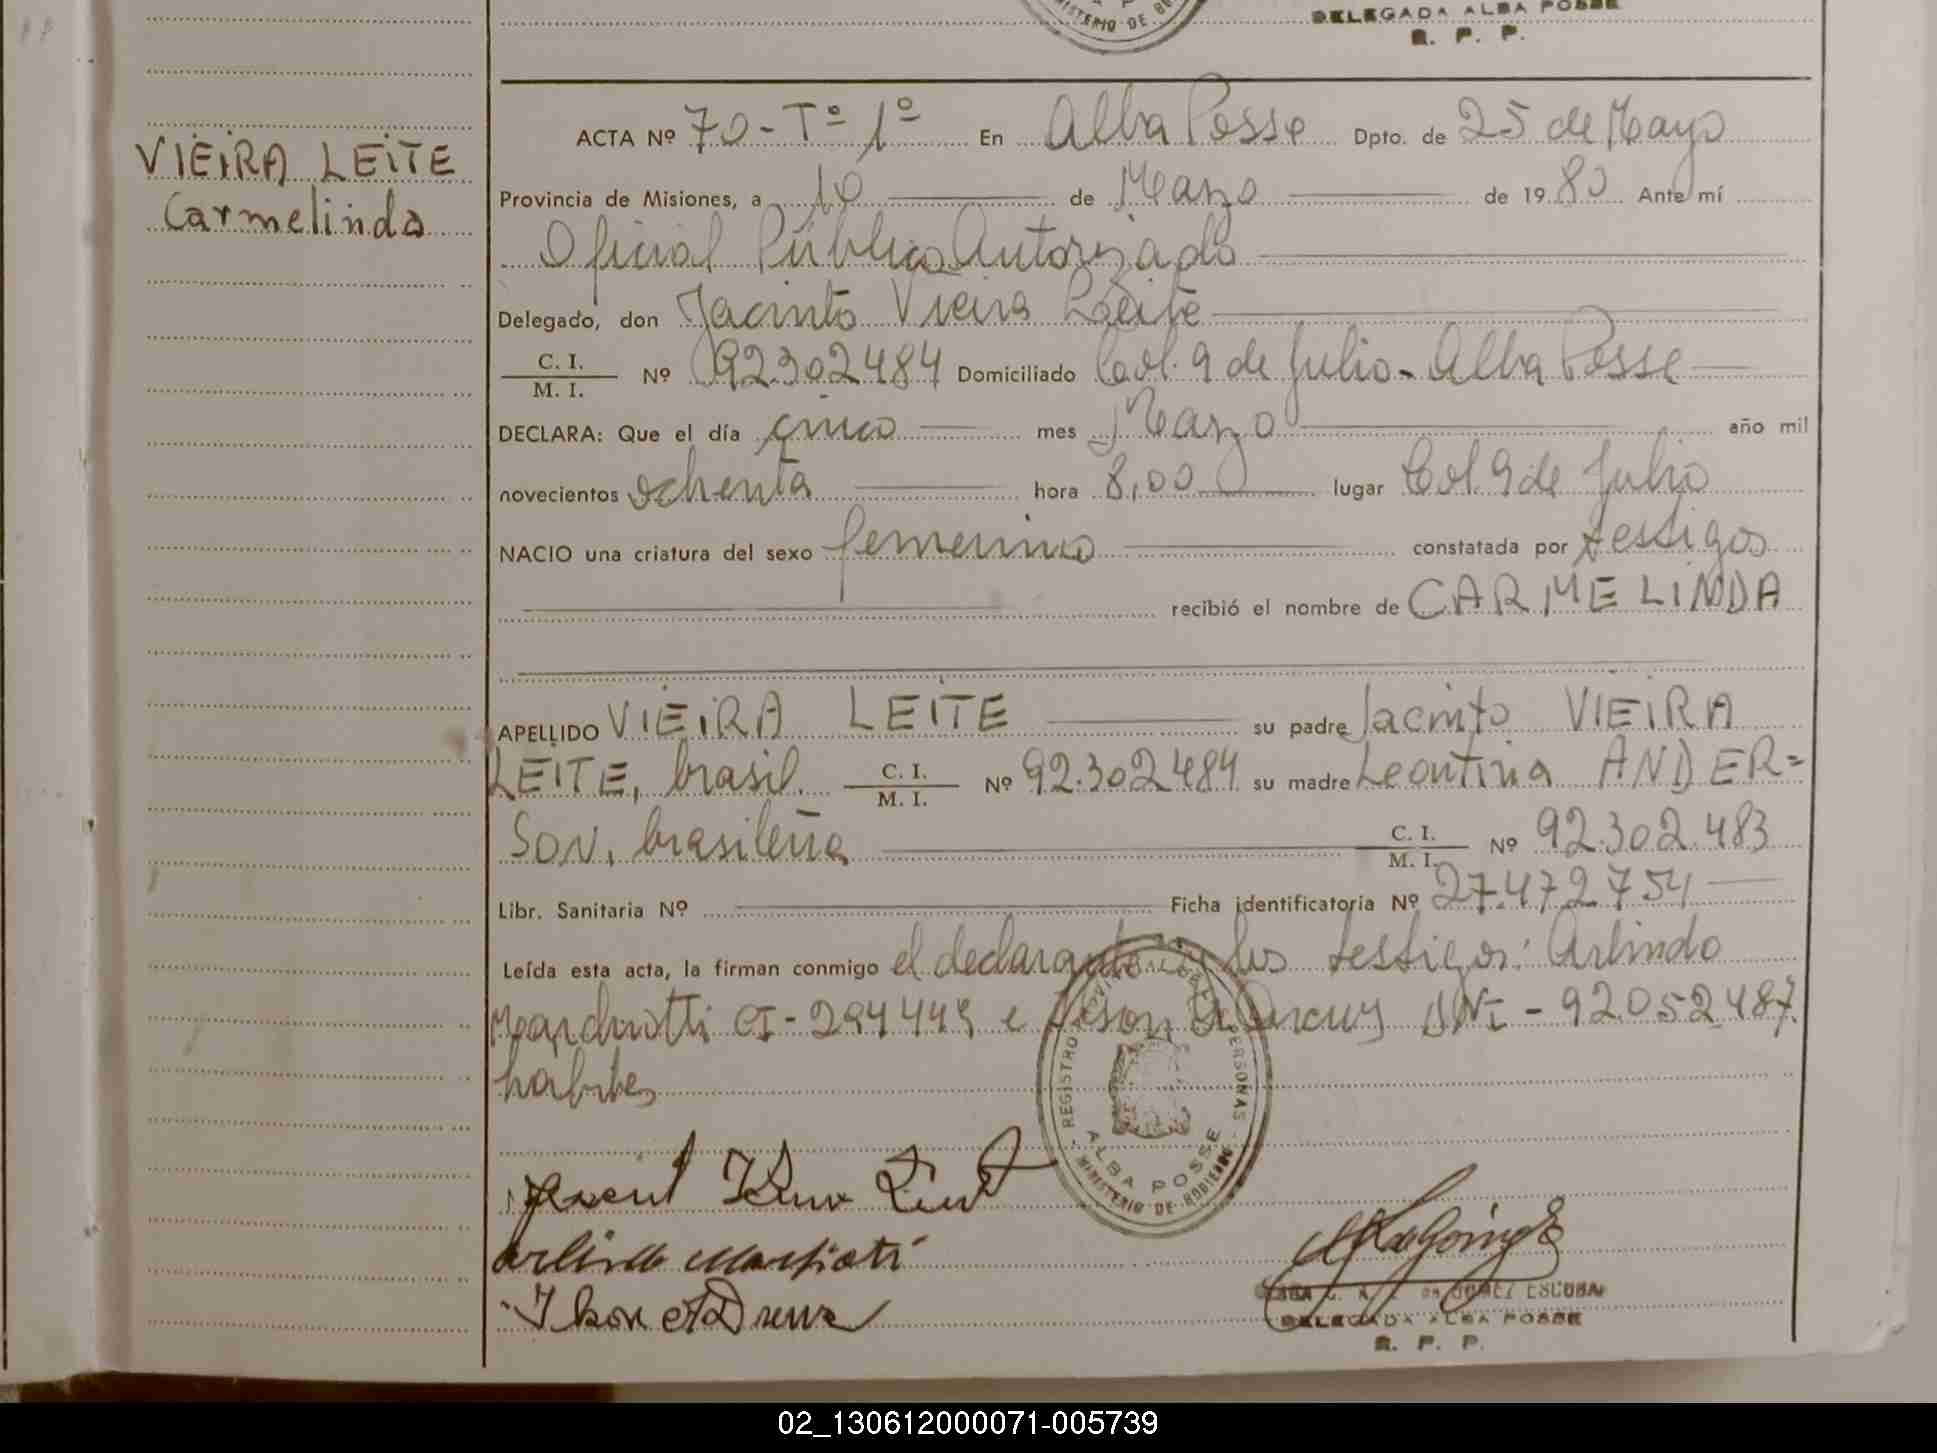 MINISTERIO DE
DELEGADA ALBA POSSE
R. P. P.
VIEIRA LEITE
Carmelinda
ACTA Nº 70 - Tº 1º En Alba Posse Dpto. de 25 de Mayo
Provincia de Misiones, a 10 de Marzo de 1980 Ante mí
Oficial Público Autorizado
Delegado, don Jacinto Vieira Leite
C. I.
M. I. Nº 92.302484 Domiciliado Col. 9 de Julio - Alba Posse
DECLARA: Que el día cinco mes Marzo año mil
novecientos ochenta hora 8,00 lugar Col. 9 de Julio
NACIO una criatura del sexo femenino constatada por testigos
recibió el nombre de CARMELINDA
APELLIDO VIEIRA LEITE su padre Jacinto VIEIRA
LEITE, brasil. C. I.
M. I. Nº 92.302484 su madre Leontina ANDER=
SON, brasileña C. I.
M. I. Nº 92.302.483
Libr. Sanitaria Nº Ficha identificatoria Nº 27.472754
Leída esta acta, la firman conmigo el declarante y los testigos: Arlindo
CI - 294449 e DNI - 92052487
habiles
REGISTRO PROVINCIAL PERSONAS
ALBA POSSE
MINISTERIO DE GOBIERNO
GOMEZ ESCOBAR
DELEGADA ALBA POSSE
R. P. P.
02_130612000071-005739